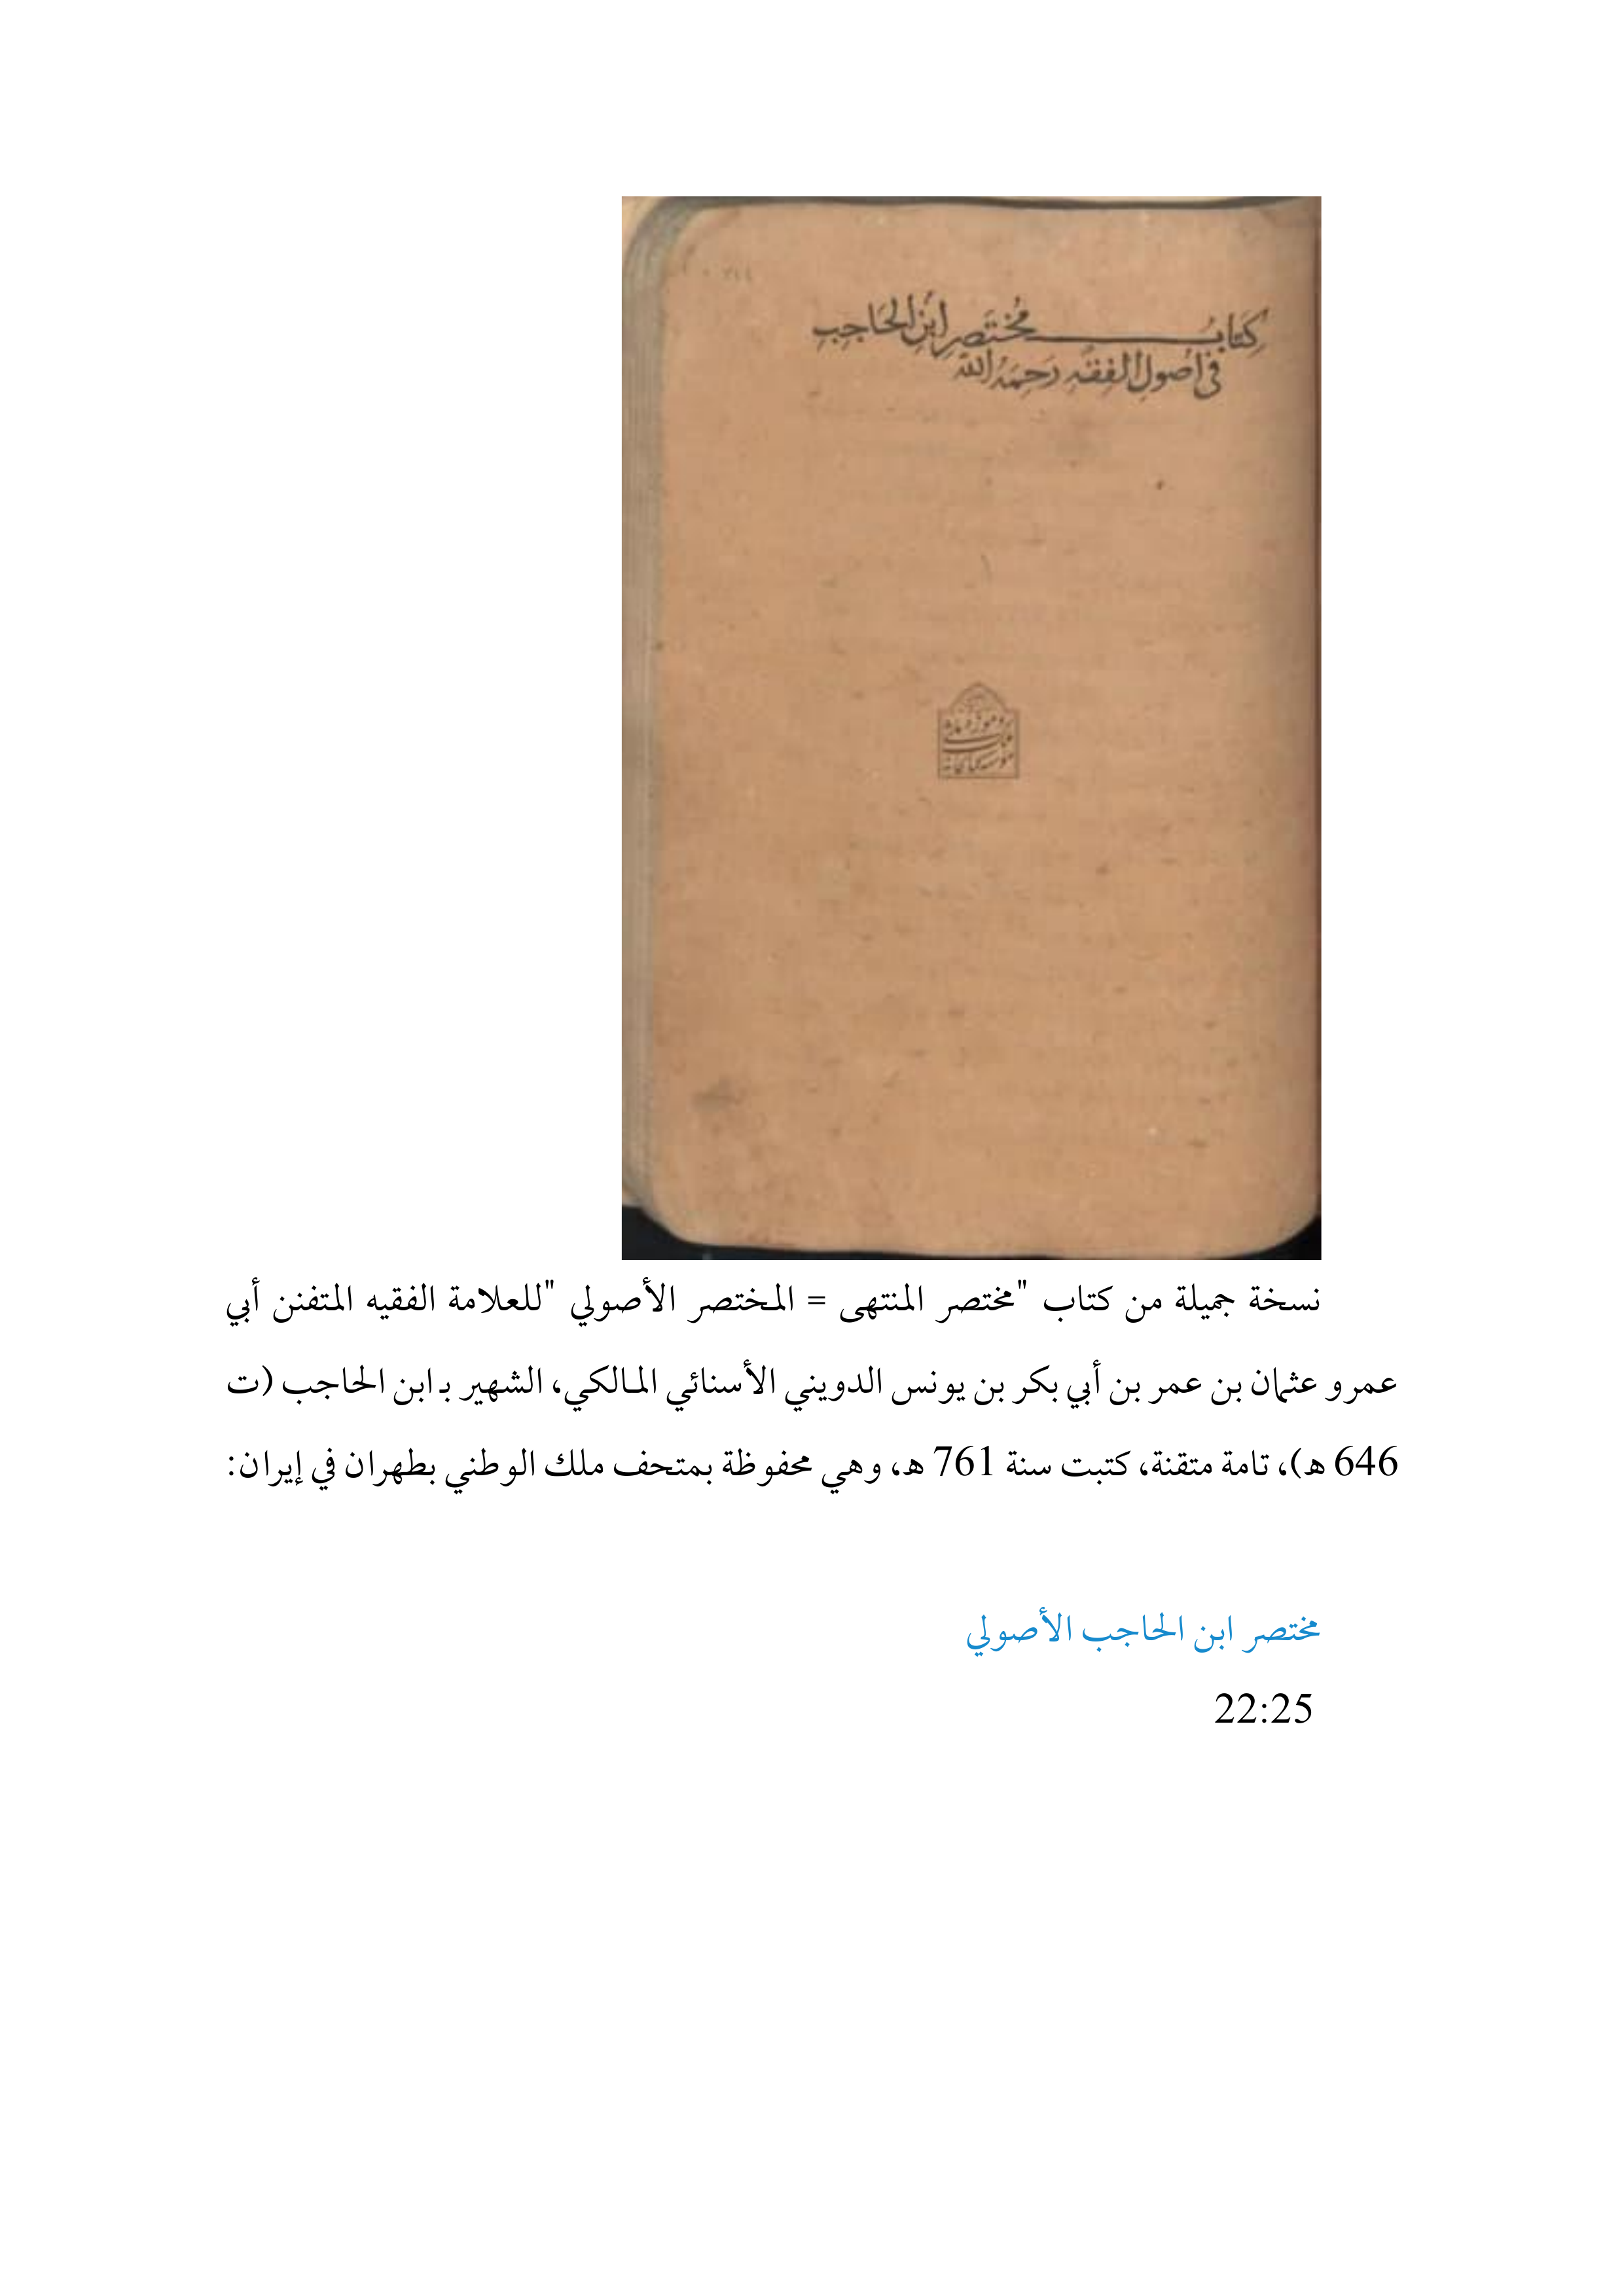 كِتَابُ مُخْتَصَرِ ابْنِ الحَاجِبِ
فِي أُصُولِ الفِقْهِ رَحِمَهُ اللهُ
نسخة جميلة من كتاب "مختصر المنتهى = المختصر الأصولي "للعلامة الفقيه المتفنن أبي
عمرو عثمان بن عمر بن أبي بكر بن يونس الدويني الأسنائي المالكي، الشهير بـ ابن الحاجب (ت
646 هـ)، تامة متقنة، كتبت سنة 761 هـ، وهي محفوظة بمتحف ملك الوطني بطهران في إيران:
مختصر ابن الحاجب الأصولي
22:25